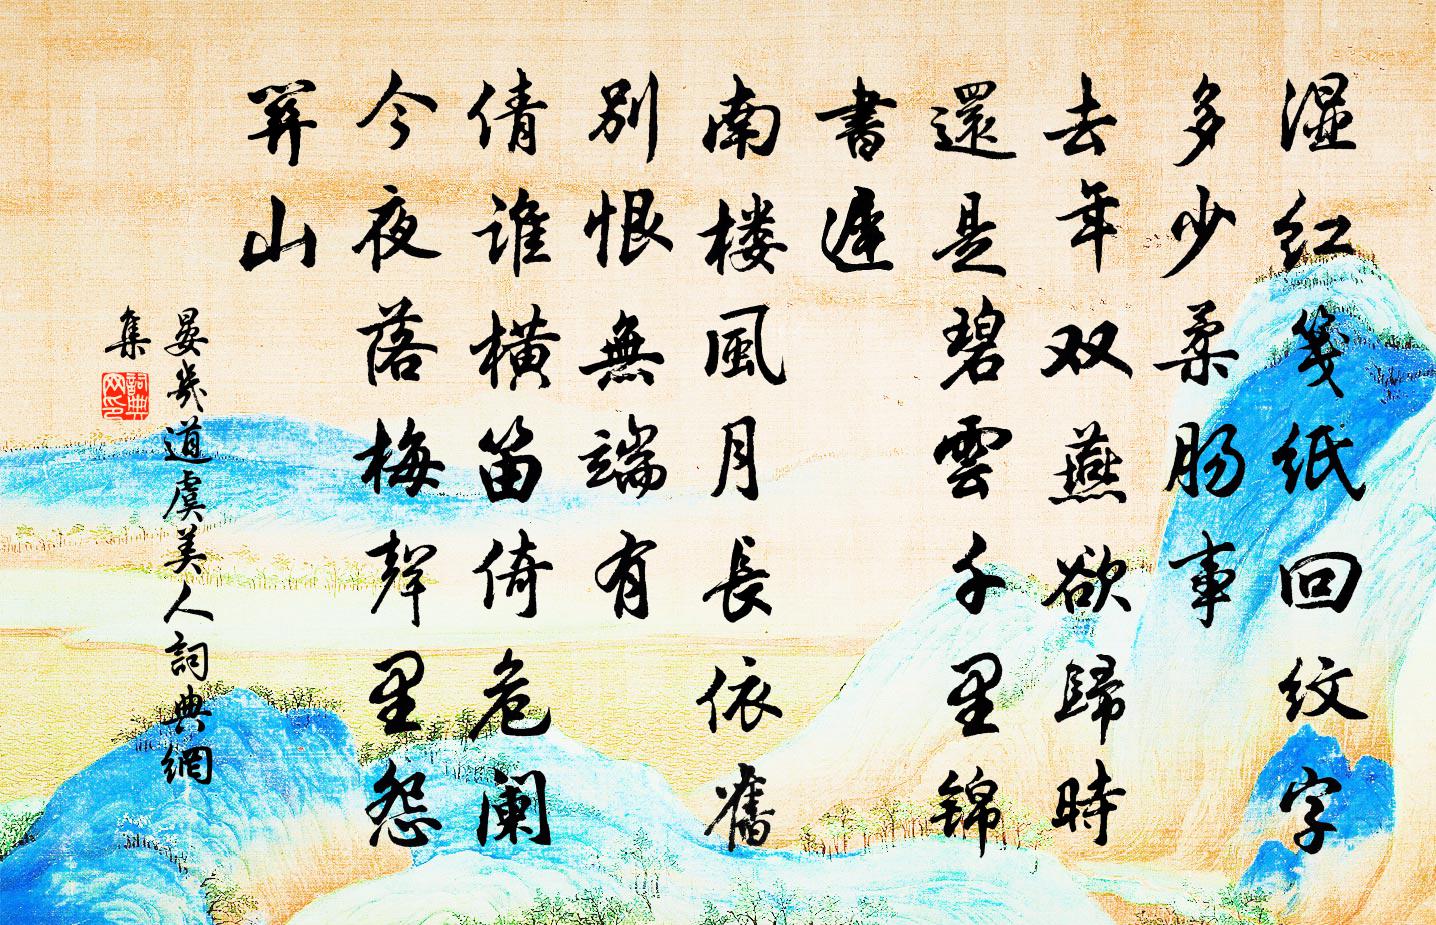 湿红笺纸回纹字
多少柔肠事
去年双燕欲歸時
還是碧雲千里锦
書遲
南楼風月長依舊
别恨無端有
倩谁横笛倚危阑
今夜落梅聲里怨
關山
晏幾道虞美人詞典網
集
詞典
网印